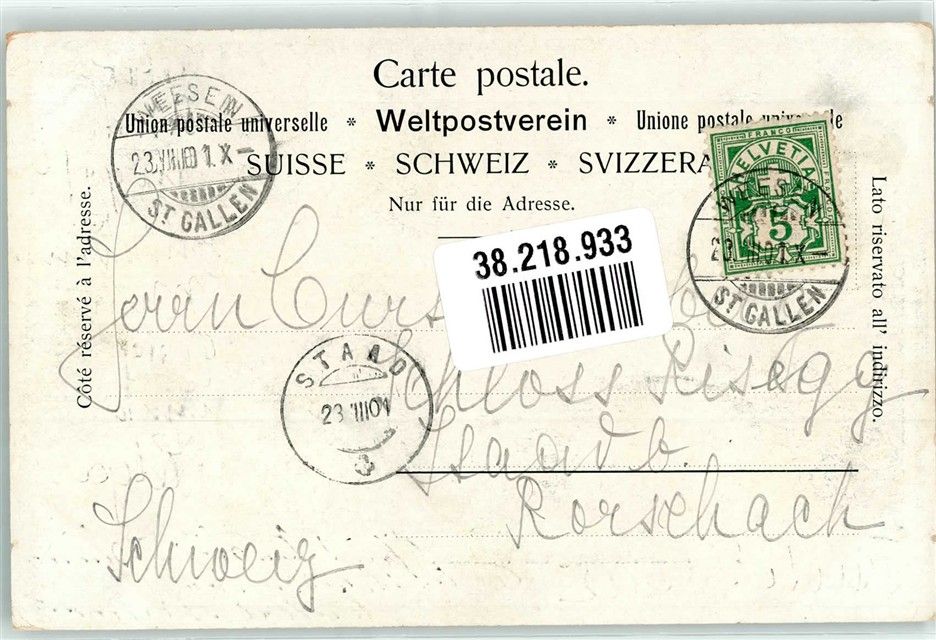 Carte postale.
Union postale universelle * Weltpostverein * Unione postale
SUISSE * SCHWEIZ * SVIZZERA
Nur für die Adresse.
Côté réservé à l'adresse.
Lato riservato all' indirizzo.
WEESEN
23.VIII.01.X-
ST GALLEN
FRANCO
HELVETIA
5
WEESEN
23.VIII.01.X-
ST GALLEN
38.218.933
Herrn Curs
Schloss Risegg
Staad b.
Rorschach
Schweiz
STAAD
23.VIII01